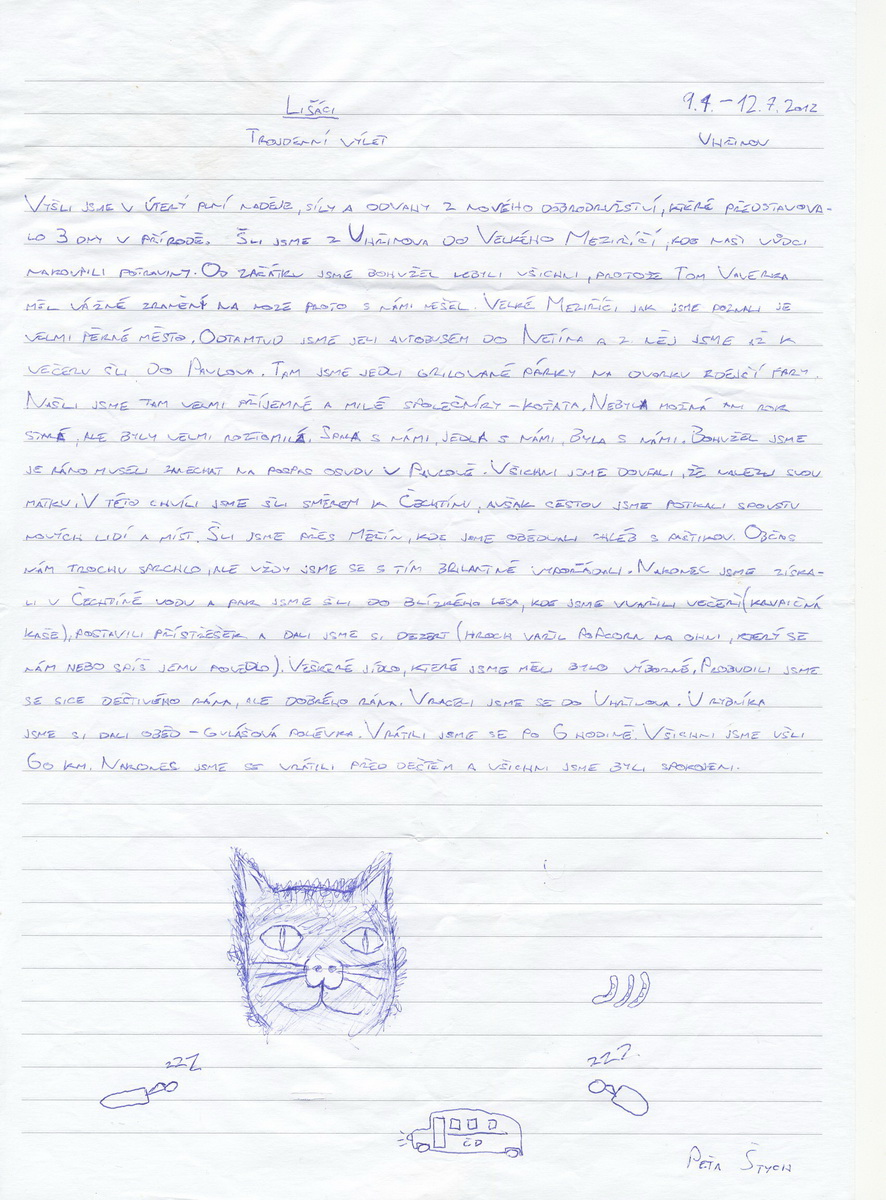 Lišáci
9.7.-12.7.2012
Trojdenní výlet
Uhřínov
Vyšli jsme v úterý plní naděje, síly a odvahy z nového dobrodružství, které představova-
lo 3 dny v přírodě. Šli jsme z Uhřínova do Velkého Meziříčí, kde naši vůdci
nakoupili potraviny. Od začátku jsme bohužel nebyli všichni, protože Tom Vaverka
měl vážné zranění na noze proto s námi nešel. Velké Meziříčí jak jsme poznali je
velmi pěkné město. Odtamtud jsme jeli autobusem do Netína a z něj jsme už k
večeru šli do Pavlova. Tam jsme jedli grilované párky na dvorku zdejší fary.
Našli jsme tam velmi příjemné a milé společníky - koťata. Nebyla možná ani rok
stará, ale byly velmi roztomilá. Spala s námi, jedla s námi, byla s námi. Bohužel jsme
je ráno museli zanechat na pospas osudu v Pavlově. Všichni jsme doufali, že naleznu svou
matku. V této chvíli jsme šli směrem k Čechtínu, avšak cestou jsme potkali spoustu
nových lidí a míst. Šli jsme přes Měřín, kde jsme obědvali chléb s paštikou. Občas
nám trochu sprchlo, ale vždy jsme se s tím brilantně vypořádali. Nakonec jsme získa-
li v Čechtíně vodu a pak jsme šli do blízkého lesa, kde jsme uvařili večeři (krupičná
kaše), postavili přístřešek a dali jsme si dezert (Hroch vařil popcorn na ohni, který se
nám nebo spíš jemu povedlo). Veškeré jídlo, které jsme měli bylo výborné. Probudili jsme
se sice deštivého rána, ale dobrého rána. Vraceli jsme se do Uhřínova. U rybníka
jsme si dali oběd - gulášová polévka. Vrátili jsme se po 6 hodině. Všichni jsme ušli
60 km. Nakonec jsme se vrátili před deštěm a všichni jsme byli spokojeni.
zzz
zzz
ČD
Peťa Štych